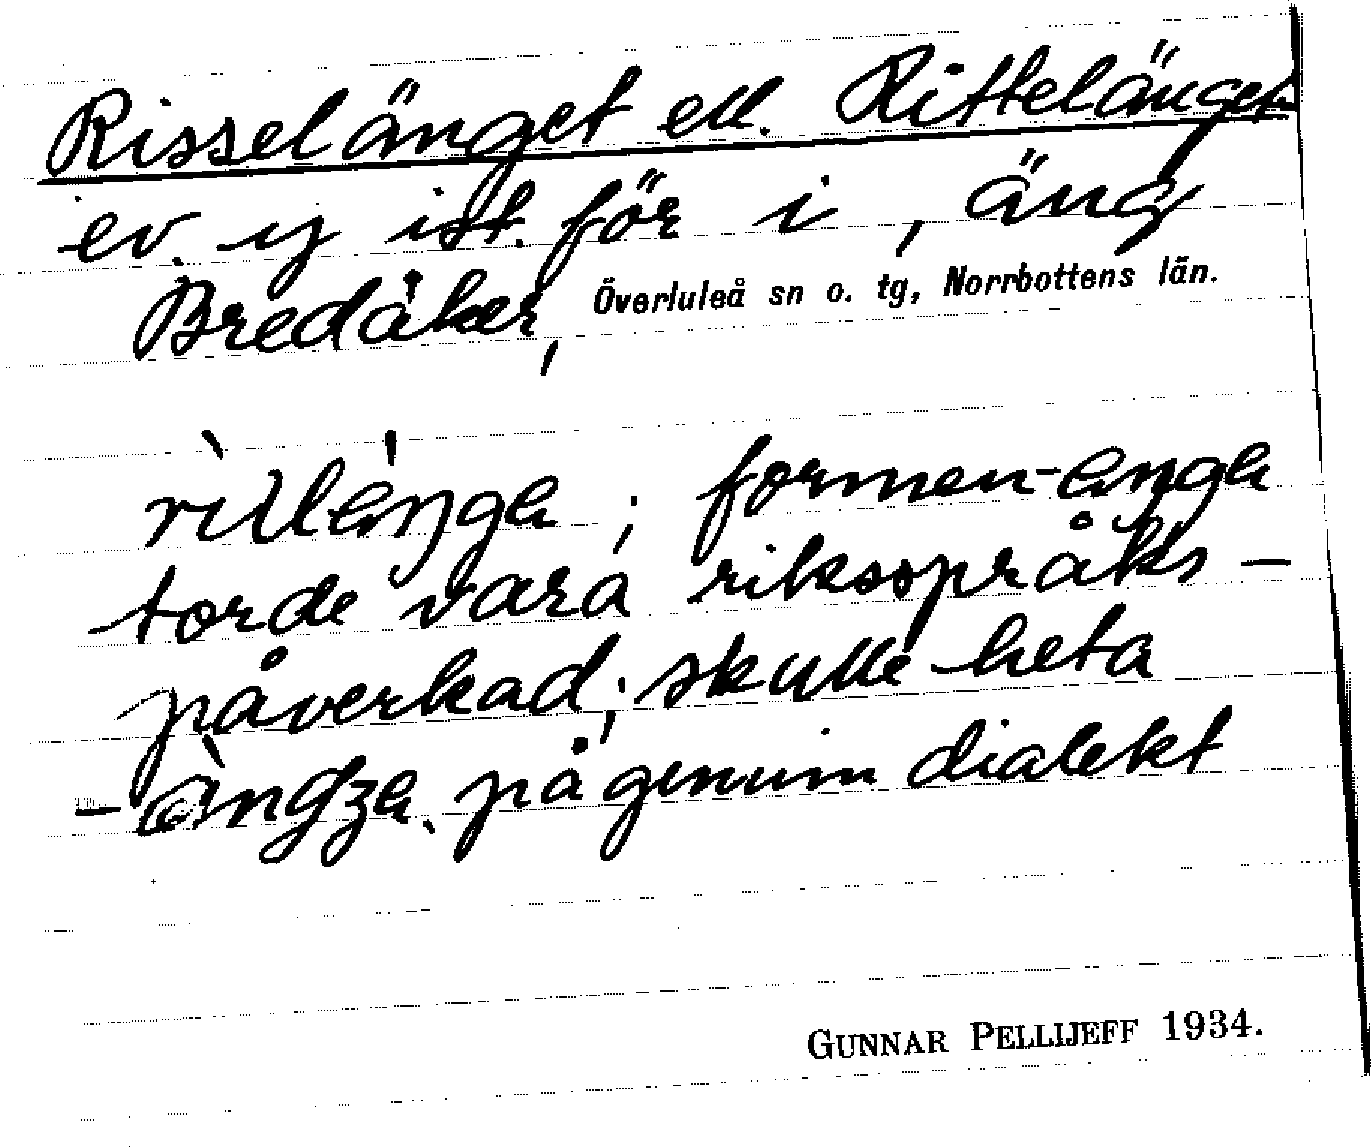 Risselänget ell. Rittelänget
ev. y ist. för i, äng
Bredåker, Överluleå sn o. tg, Norrbottens län.
formen -änga
torde vara riksspråks-
påverkad; skulle heta
på genuin dialekt
GUNNAR PELLIJEFF 1934.